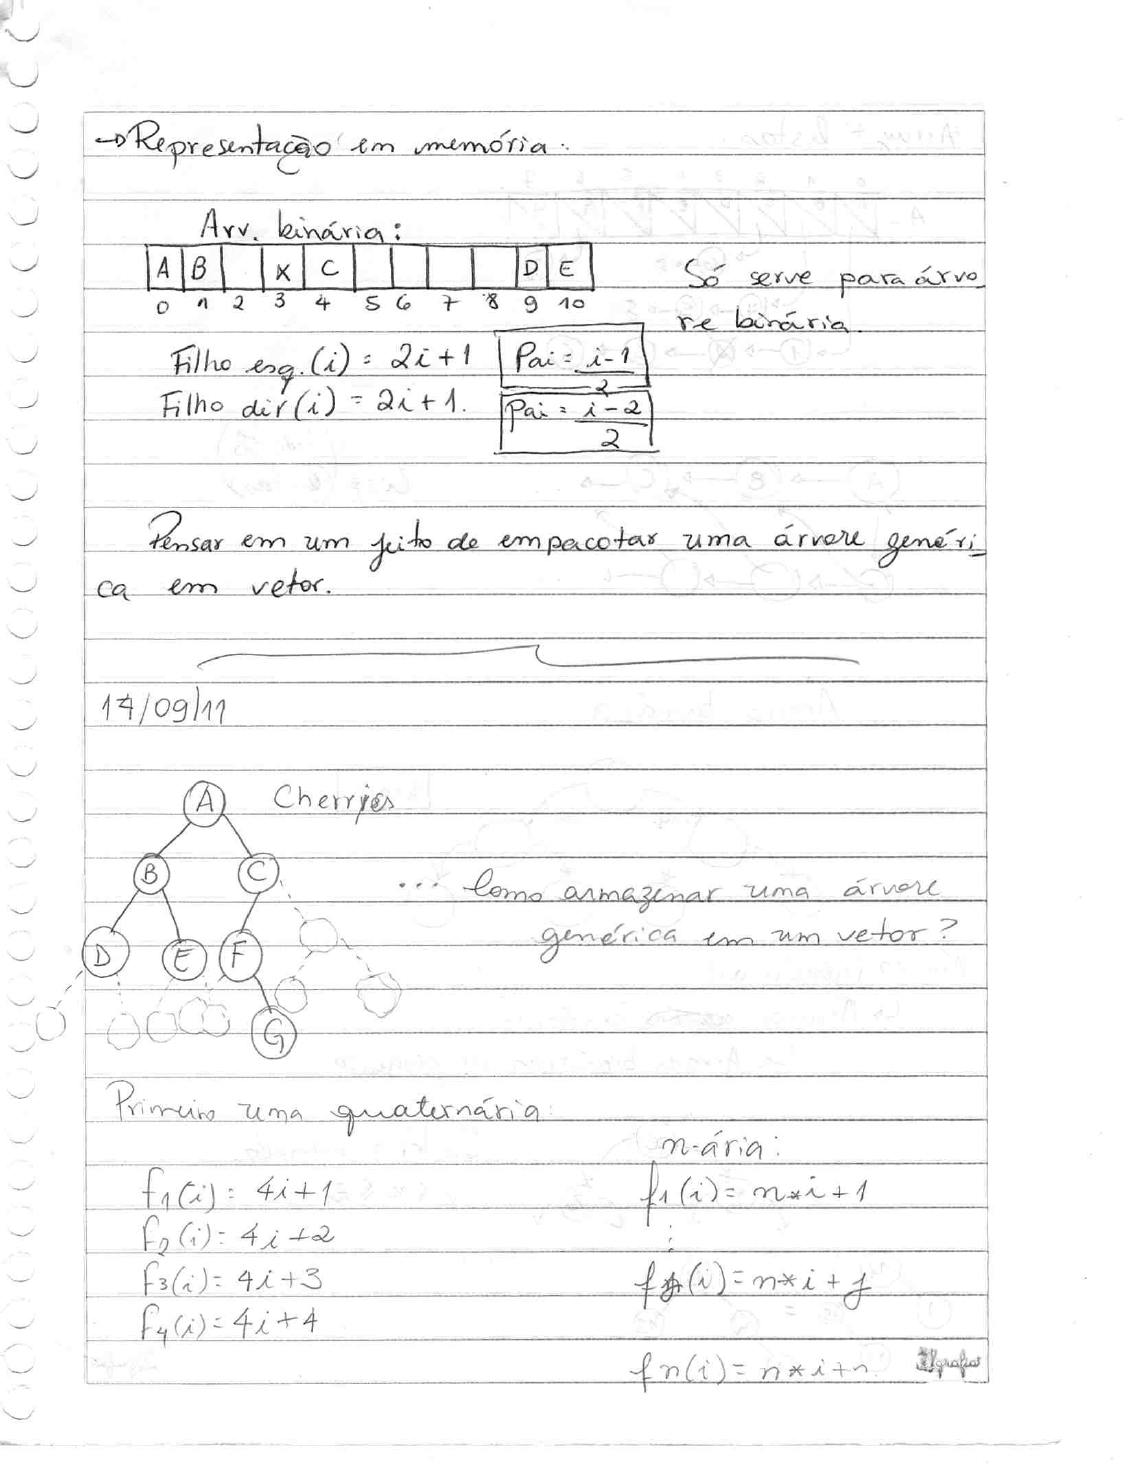 → Representação em memória:
Arv. binária:
A B X C D E
0 1 2 3 4 5 6 7 8 9 10
Só serve para árvo
re binária.
Filho esq.(i) = 2i+1 Pai = i-1
2
Filho dir(i) = 2i+1. Pai = i-2
2
Pensar em um jeito de empacotar uma árvore genéri
ca em vetor.
/09/11
A Cherries
B C
... Como armazenar uma árvore
genérica em um vetor?
D E F
G
Primeiro uma quaternária:
n-ária:
f1(i) = 4i+1 f1(i) = n*i+1
f2(i) = 4i+2
⋮
f3(i) = 4i+3 fj(i) = n*i+j
f4(i) = 4i+4
fn(i) = n*i+n